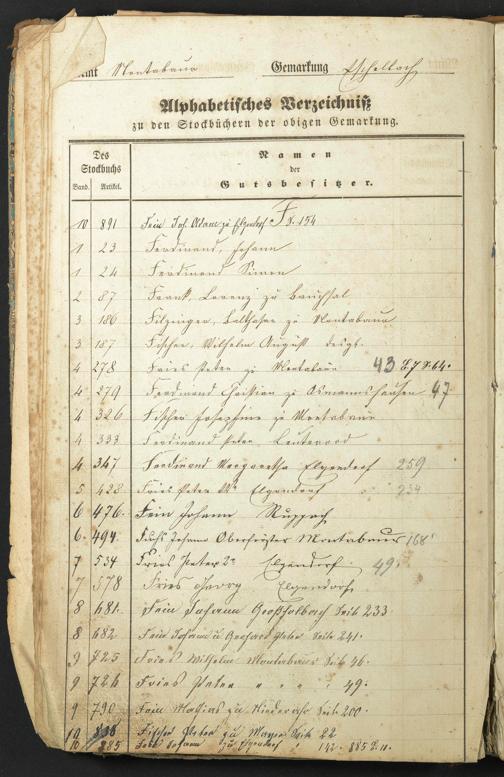 Amt Montabaur Gemarkung Eschelbach
Alphabetisches Verzeichniß
zu den Stockbüchern der obigen Gemarkung.
Des Stockbuchs
Band. Artikel.
Namen
der
Gutsbesitzer.
F
10 891 Fein Joh. Adam zu Elgendorf S. 154
1 23 Ferdinand, Johann
1 24 Ferdinand Simon
2 87 Frank, Lorenz zu Bruchsal
3 186 Filzinger, Balthasar zu Montabaur
3 187 Fischer, Wilhelm August desgl.
4 278 Fries Peter zu Montabaur 43
4 279 Ferdinand Christian zu Asmannshausen 47
4 326 Fischer Josephine zu Montabaur
4 333 Ferdinand Peter, Leuterod
4 347 Ferdinand Margaretha Elgendorf 259
5 428 Fries Peter Elgendorf 234
6 476. Fein Johann Ruppach
6. 494. Fuchs Johann Oberförster Montabaur 168
7 534 Fries Peter 2r Elgendorf. 49.
7 578 Fries Georg Elgendorf
8 681. Fein Johann Großholbach Seite 233.
8 682 Fein Johann u Gerhard Peter Seite 241.
9 725 Fries Wilhelm Montabaur Seite 46.
9 726 Fries Peter " " " 49.
9 790 Fein Mathias zu Niederahr Seite 200.
10 838 Fischer Peter zu Seite 22
10 885 Johann zu Elgendorf " 142.